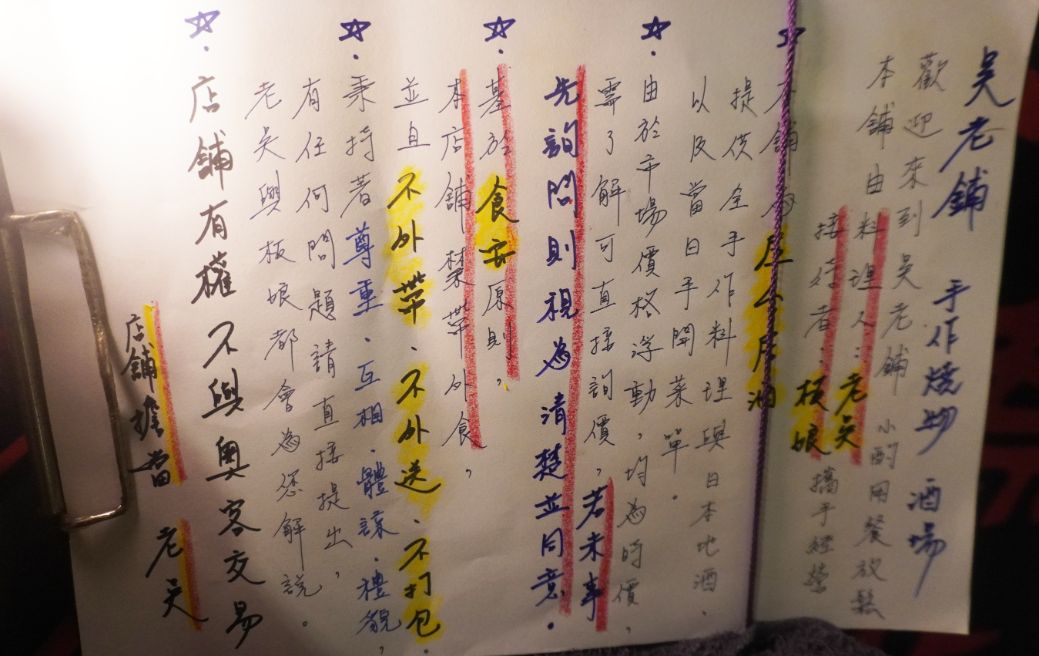 吳老鋪 手作燒物 酒場
歡迎來到吳老鋪 小酌用餐放鬆
本鋪由料理人：老吳
接待者：板娘 攜手經營
本鋪為
提供全手作料理與日本地酒、
以及當日手開菜單。
由於市場價格浮動，均為時價，
需了解可直接詢價，若未事
先詢問則視為清楚並同意。
基於食安原則，
本店鋪禁帶外食，
並且不外帶、不外送、不打包。
秉持著尊重、互相、體諒、禮貌，
有任何問題請直接提出，
老吳與板娘都會為您解說。
店鋪有權不與奧客交易
店鋪擔當 老吳